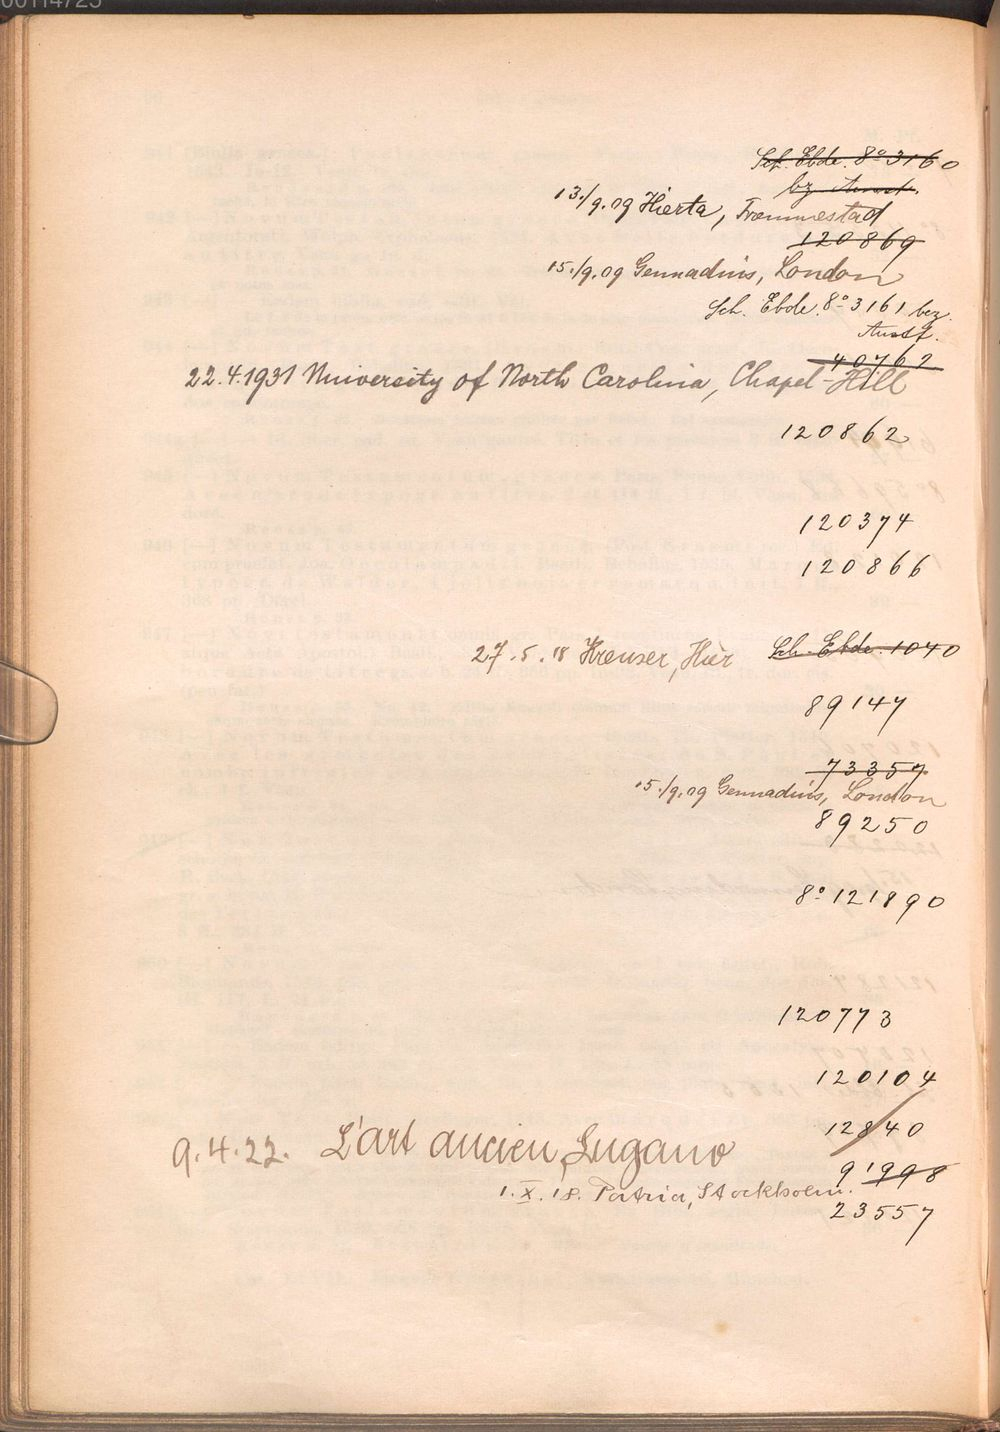 00114725
Sch. Ebde. 8° 3160
bz Ausst.
13./9.09 Hierta, Främmestad
120869
15./9.09 Gennadius, London
Sch. Ebde. 8° 3161 bez.
Ausst.
40762
22.4.1931 University of North Carolina, Chapel-Hill
120862
120374
120866
27.5.18 Kreuser, Hier Sch. Ebde. 1040
89147
73357
15./9.09 Gennadius, London
89250
8° 121890
120773
120104
12840
9.4.22. L'art ancien, Lugano
91998
1.X.18. Patria, Stockholm.
23557